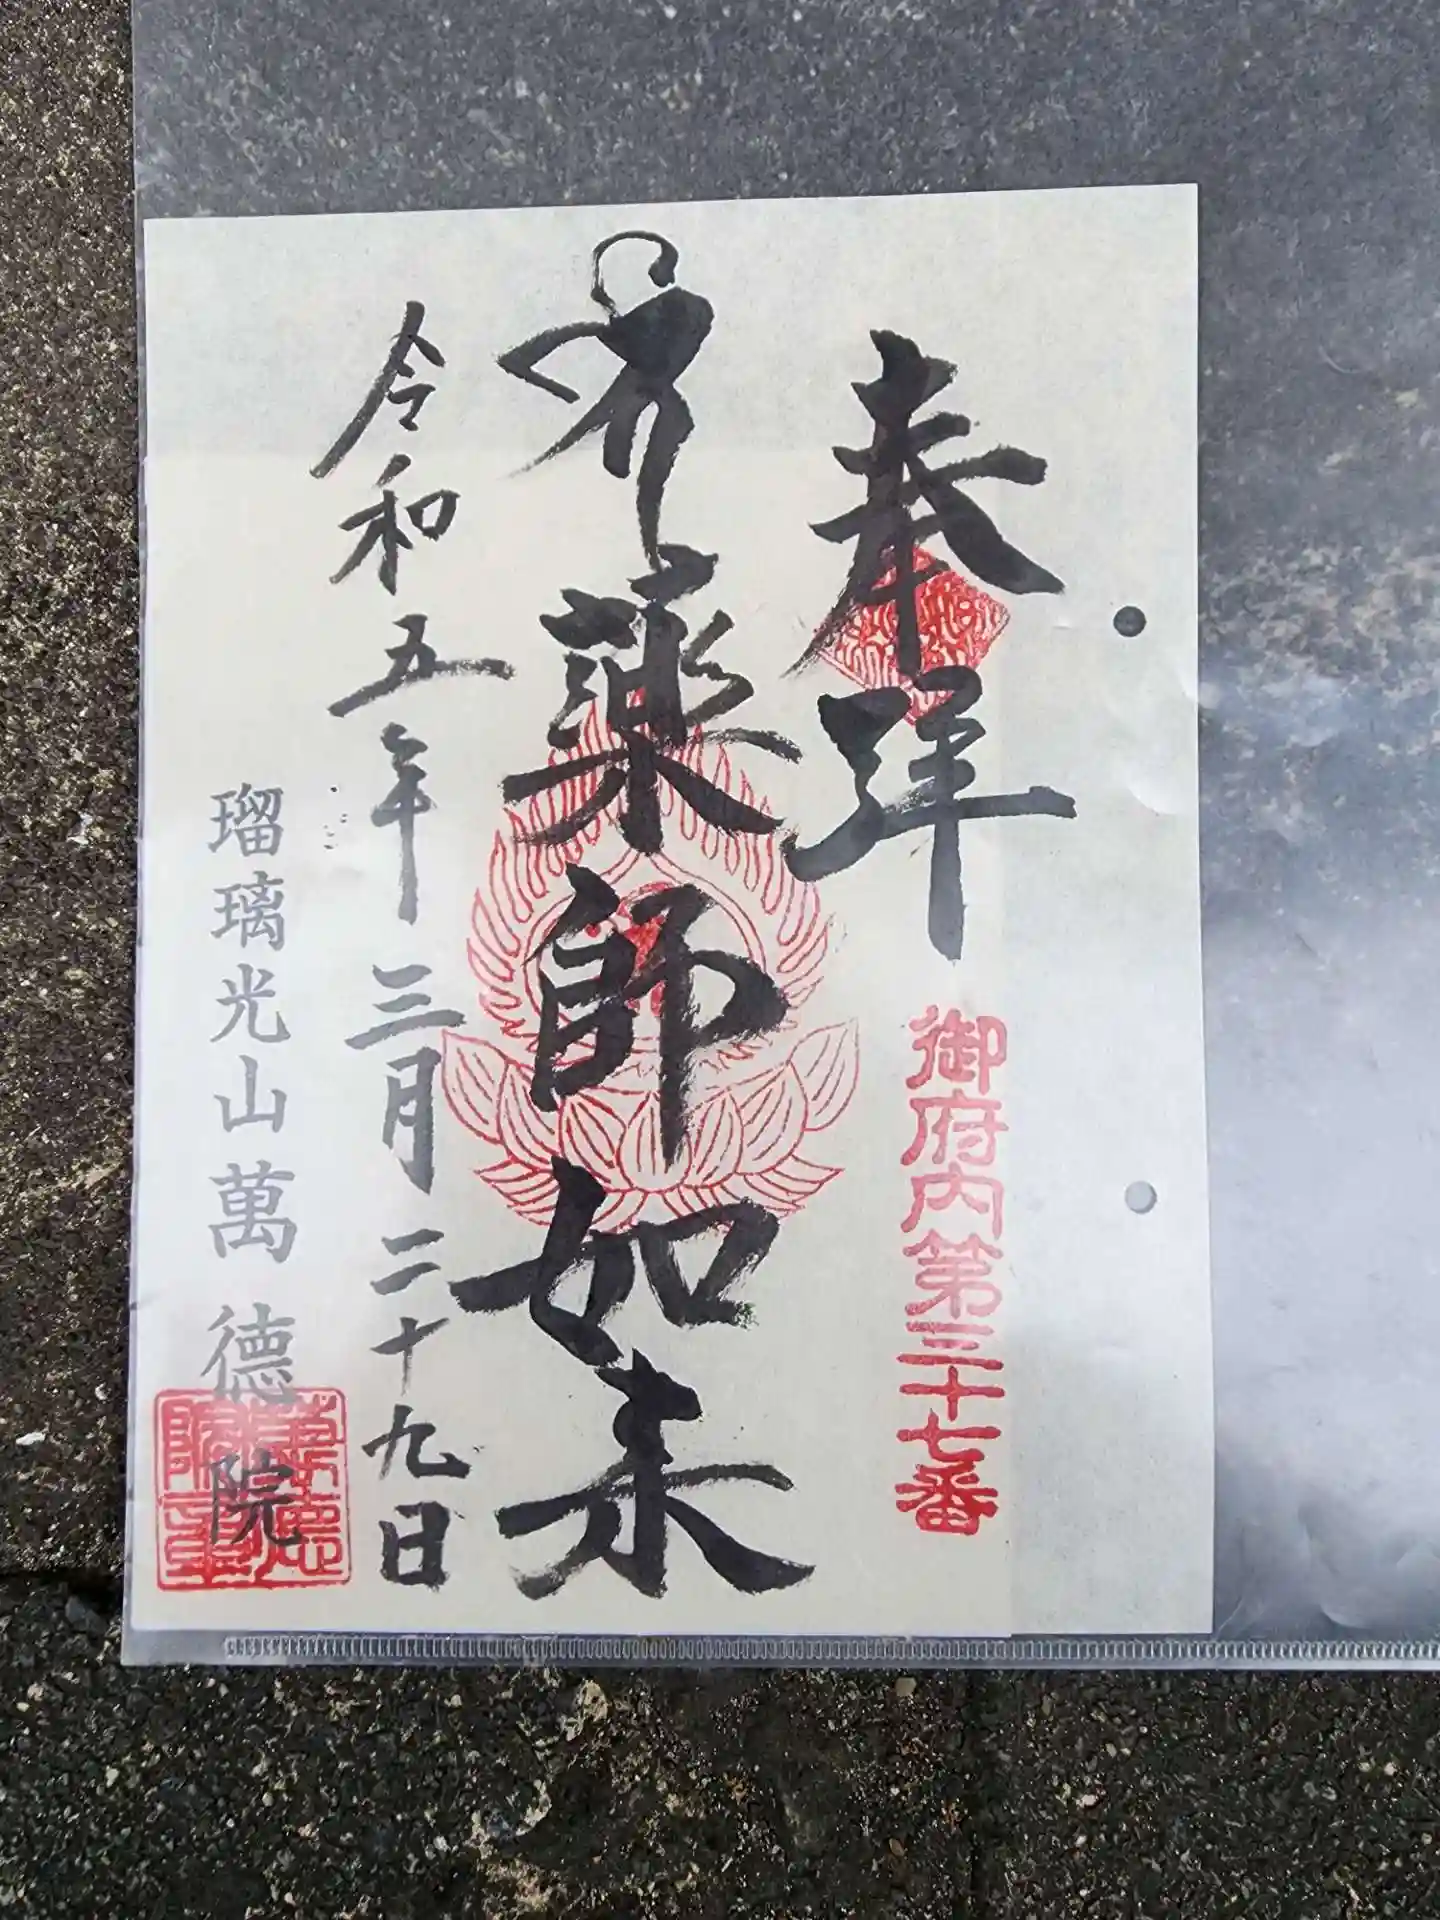 奉拝
御府内第三十七番
薬師如来
令和五年三月二十九日
瑠璃光山萬德院
萬德院章